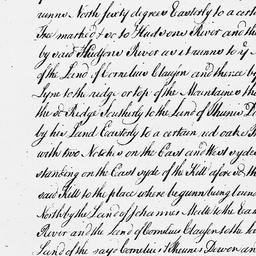 runns North fivty degrees Easterly to a certa
Tre marked for so Hudsons River and the
by said Hudsons River as it runns to ye
of the Land of Cornelius Clausen and thence by
Lyne to the ridge or top of the Mountaine the
the sd Ridge Southerly to the Land of Theunis D
by his Land Easterly to a certain red oake T
with two Notches on the East and West syde
standing on the East syde of the Kill afore sd th
said Kill to the place where begunn being boun
North by the Land of Johannes Mell to the Eas
River and the Land of Cornelius Clausen sothe
Land of the sayd Cornelius & Theunis Dowen an